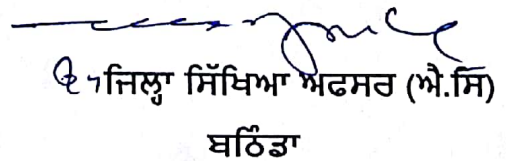 ਜਿਲ੍ਹਾ ਸਿੱਖਿਆ ਅਫਸਰ (ਐ.ਸਿ)
ਬਠਿੰਡਾ